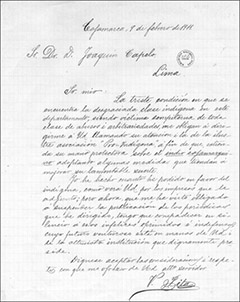 Cajamarca, 9 de febrero de 1911
Sr. Dr. D. Joaquín Capelo
Lima
Sr. mío
La triste condición en que se
encuentra la desgraciada clase indígena en este
departamento, siendo víctima constante de toda
clase de abusos y arbitrariedades, me obliga á diri-
girme á Ud. llamando su atención y la de la ilustre
asociación "Pro-Indígena" á fin de que, exten-
da su mano protectora sobre el indio cajamarqui-
no adoptando algunas medidas que tiendan á
mejorar su lamentable suerte.
Yo he hecho cuanto he podido en favor del
indígena, como verá Ud. por los impresos que le
adjunto; pero ahora que me he visto obligado
á suspender la publicación de los periódicos
que he dirigido, tengo que
cuyo futuro ponemos en manos de Ud. i
de la altruista institución que dignamente pre-
side.
Dígnese aceptar las consideraciones i respe-
tos con que me ofrezco de Ud. atto servidor